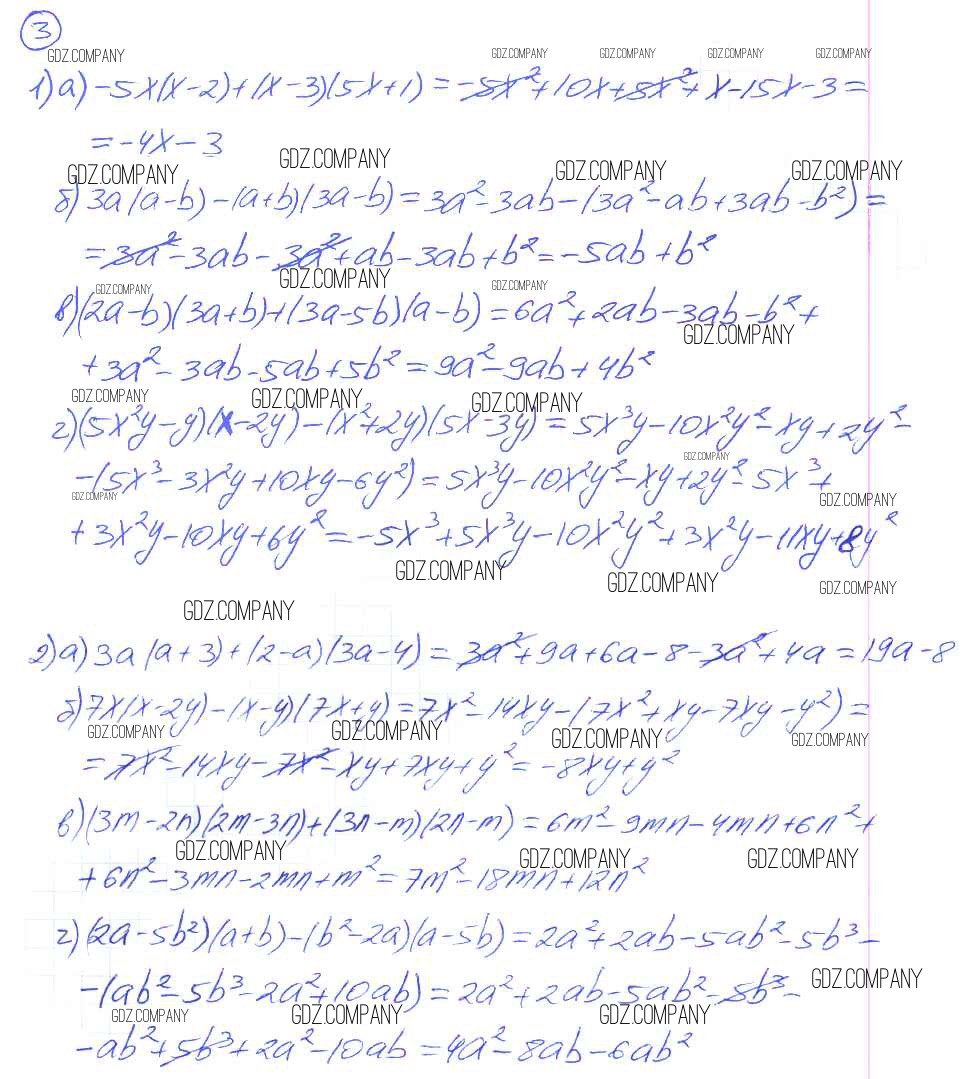 3
GDZ.COMPANY GDZ.COMPANY GDZ.COMPANY GDZ.COMPANY GDZ.COMPANY
1) а) -5x(x-2)+(x-3)(5x+1) = -5x²+10x+5x²+x-15x-3 =
= -4x-3
GDZ.COMPANY GDZ.COMPANY GDZ.COMPANY GDZ.COMPANY
б) 3a(a-b)-(a+b)(3a-b) = 3a²-3ab-(3a²-ab+3ab-b²) =
= 3a²-3ab-3a²+ab-3ab+b² = -5ab+b²
GDZ.COMPANY GDZ.COMPANY GDZ.COMPANY
в) (2a-b)(3a+b)+(3a-5b)(a-b) = 6a²+2ab-3ab-b²+
GDZ.COMPANY
+3a²-3ab-5ab+5b² = 9a²-9ab+4b²
GDZ.COMPANY GDZ.COMPANY GDZ.COMPANY
г) (5x²y-y)(x-2y)-(x²+2y)(5x-3y) = 5x³y-10x²y²-xy+2y²-
GDZ.COMPANY
-(5x³-3x²y+10xy-6y²) = 5x³y-10x²y²-xy+2y²-5x³+
GDZ.COMPANY GDZ.COMPANY
+3x²y-10xy+6y² = -5x³+5x³y-10x²y²+3x²y-11xy+8y²
GDZ.COMPANY GDZ.COMPANY GDZ.COMPANY
GDZ.COMPANY
2) а) 3a(a+3)+(2-a)(3a-4) = 3a²+9a+6a-8-3a²+4a = 19a-8
б) 7x(x-2y)-(x-y)(7x+y) = 7x²-14xy-(7x²+xy-7xy-y²) =
GDZ.COMPANY GDZ.COMPANY GDZ.COMPANY GDZ.COMPANY
= 7x²-14xy-7x²-xy+7xy+y² = -8xy+y²
в) (3m-2n)(2m-3n)+(3n-m)(2n-m) = 6m²-9mn-4mn+6n²+
GDZ.COMPANY GDZ.COMPANY GDZ.COMPANY
+6n²-3mn-2mn+m² = 7m²-18mn+12n²
г) (2a-5b²)(a+b)-(b²-2a)(a-5b) = 2a²+2ab-5ab²-5b³-
GDZ.COMPANY
-(ab²-5b³-2a²+10ab) = 2a²+2ab-5ab²-5b³-
GDZ.COMPANY GDZ.COMPANY GDZ.COMPANY
-ab²+5b³+2a²-10ab = 4a²-8ab-6ab²